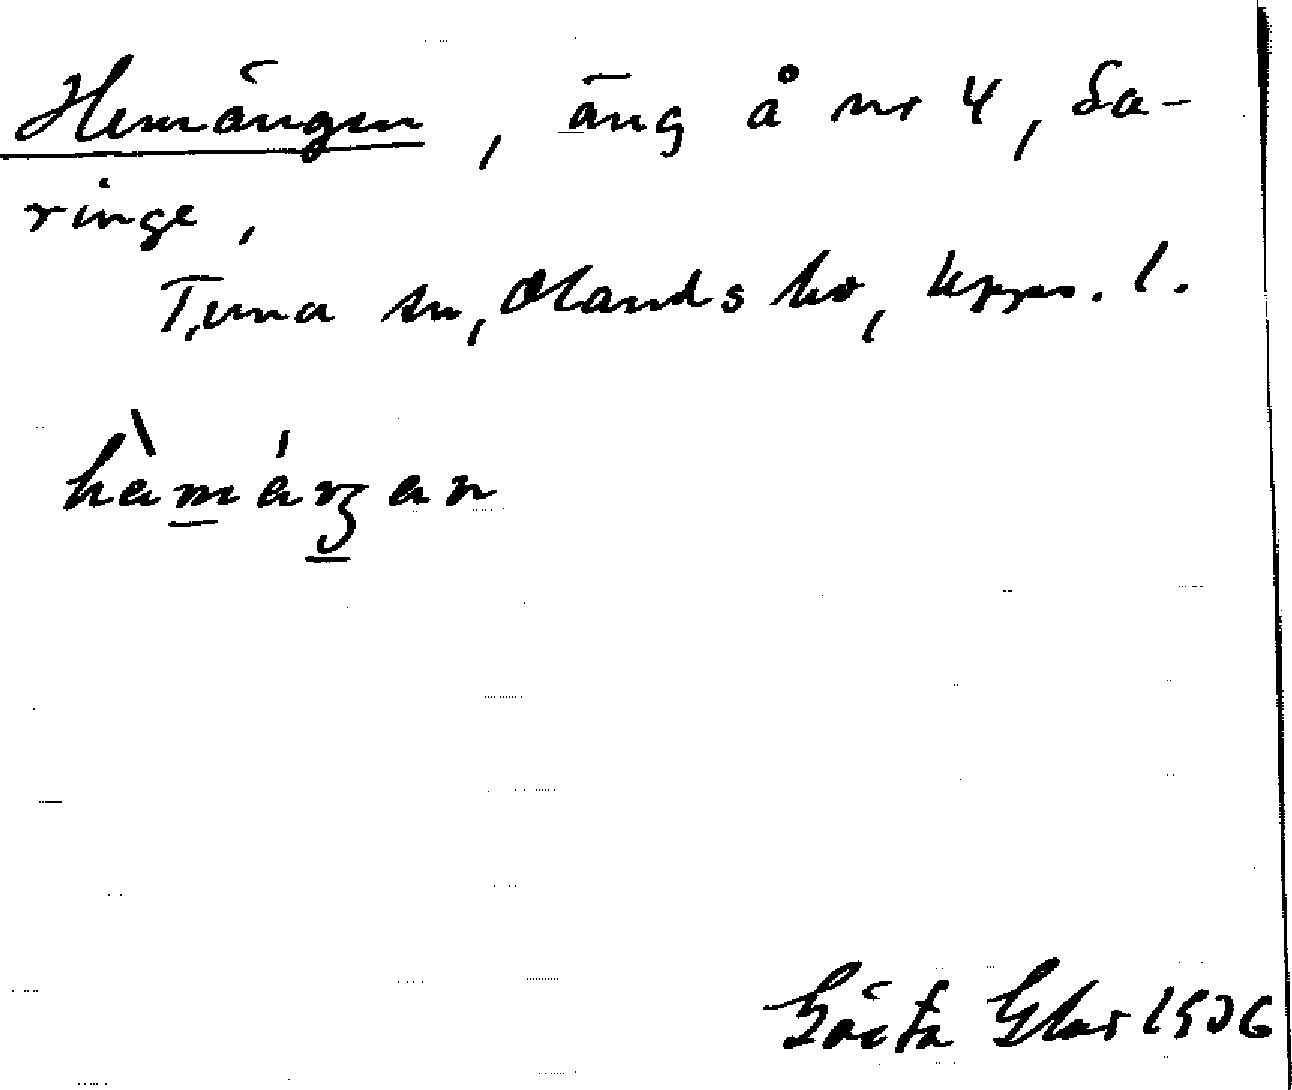 Hemängen, äng å nr 4, Sa-
ringe,
Tuna sn, Olands hd, Upps. l.
hèmáŋan
Gösta Glas 1936